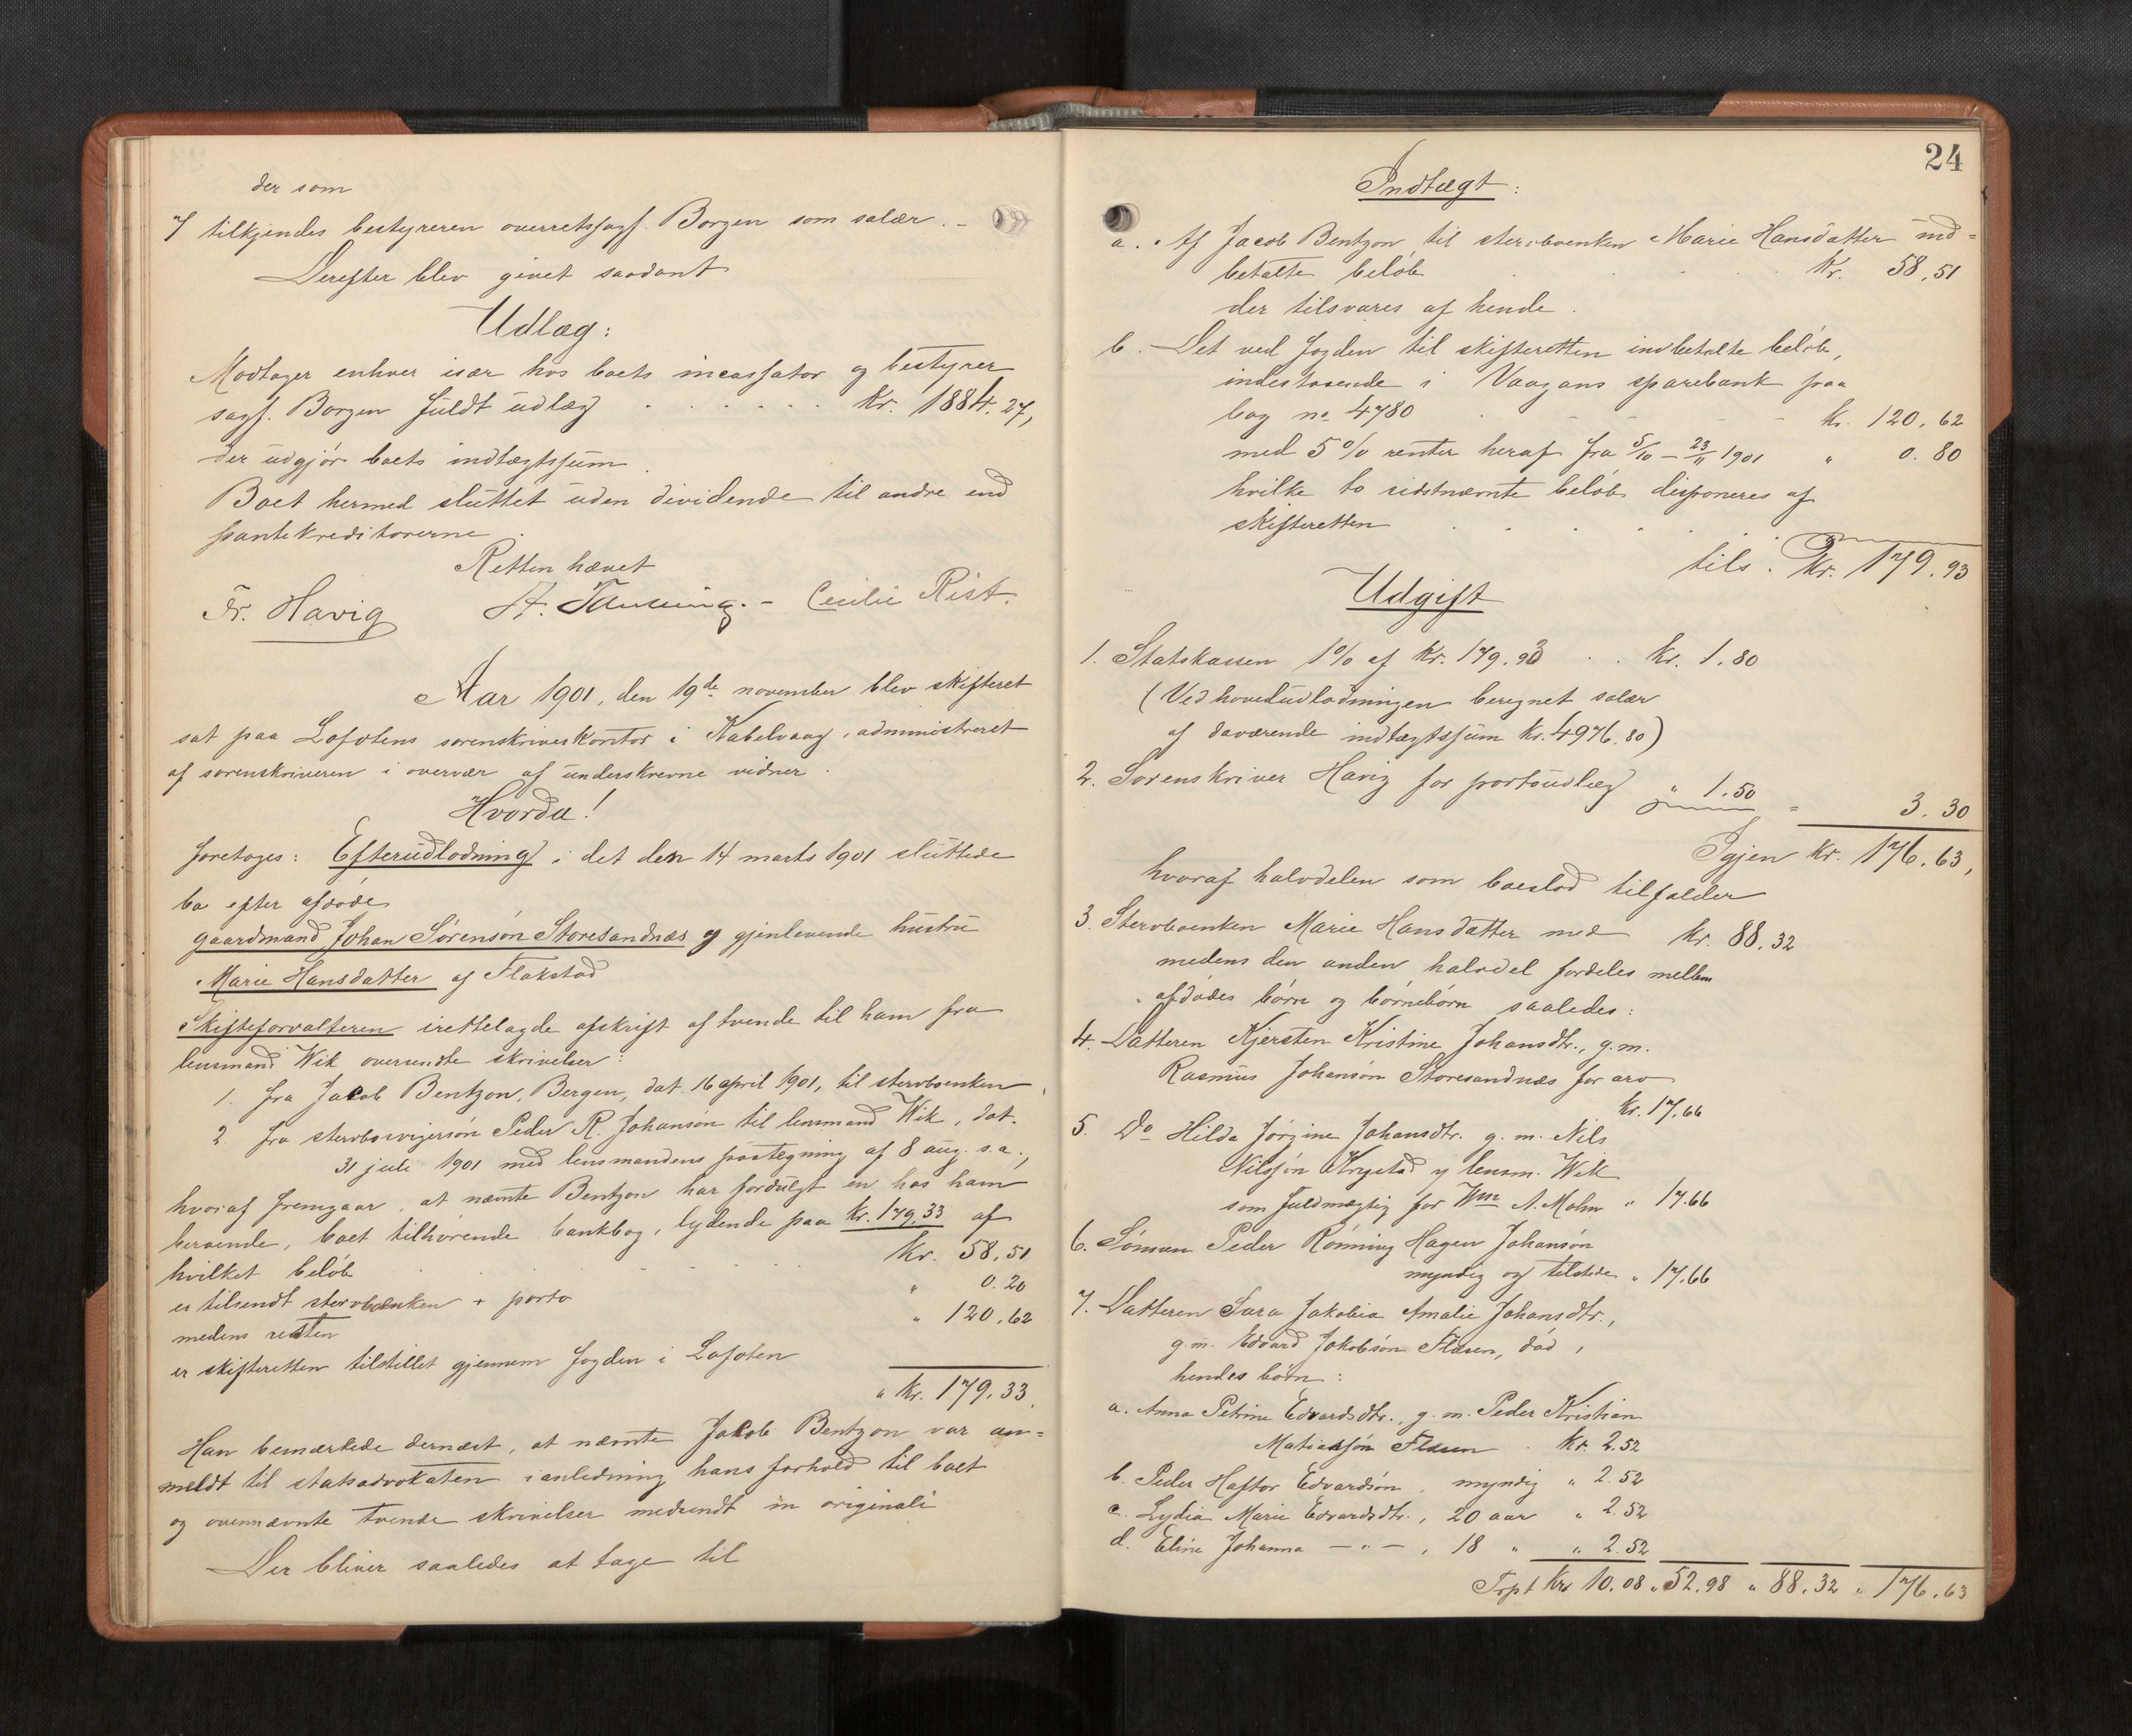 der som
tilkjendes bestyreren overretssagf. Borgen som salær. -
Derefter blev givet saadant
Udlæg:
Modtager enhver især hos boets incassator og bestyrer
sagf. Borgen fuldt udlæg . . . . . . Kr. 1884.27,
der udgjør boets indtægtssum.
Boet hermed sluttet uden dividende til andre end
pantekreditorerne.
Retten hævet
Fr. Havig - Cecilie Rist.
Aar 1901, den 19de november blev skifteret
sat paa Lofotens sorenskriverkontor i Kabelvaag, administreret
af sorenskriveren i overvær af underskrevne vidner.
Hvorda!
foretoges: Efterudlodning i det den 14 marts 1901 sluttede
bo efter afdøde
gaardmand Johan Sørensøn Storesandnæs og gjenlevende hustru
Marie Hansdatter af Flakstad
Skifteforvalteren irettelagde afskrift af tvende til ham fra
lensmand Wik oversendte skrivelser:
1. fra Jacob Bentzon, Bergen, dat. 16 april 1901, til stervboenken
2. fra stervbo Peder R. Johansøn til lensmand Wik, dat.
31 juli 1901 med lensmandens paategning af 8 aug. s.a.,
hvoraf fremgaar, at nævnte Bentzon har fordulgt en hos ham
beroende, boet tilhørende bankbog, lydende paa Kr. 179.33 af
hvilket beløb . . . . . . Kr. 58,51
er tilsendt stervboenken + porto " 0.20
medens resten " 120,62
er skifteretten tilstillet gjennem fogden i Lofoten
" Kr. 179.33.
Han bemærkede dernæst, at nævnte Jakob Bentzon var an=
meldt til statsadvokaten i anledning hans forhold til boet
og ovennævnte tvende skrivelser medsendt in originali
Der bliver saaledes at tage til
24
Indtægt:
a. Af Jacob Bentzon til stervboenken Marie Hansdatter ind=
betalte beløb . . . . Kr. 58,51
der tilsvares af hende.
b. Det ved fogden til skifteretten indbetalte beløb,
indestaaende i Vaagans sparebank paa
bog no 4780 . - - - kr. 120,62
med 5 % renter heraf fra 5/10 - 23/11 1901 " 0.80
hvilke to sidstnævnte beløb disponeres af
skifteretten . . . .
tils. Kr. 179.93
Udgift
1. Statskassen 1% af Kr. 179.93 . . Kr. 1.80
(Ved hovedudlodningen beregnet salær
af daværende indtægtssum Kr. 4976.80)
2. Sorenskriver Havig for portoudlæg " 1.50 = 3.30
Igjen Kr. 176.63,
hvoraf halvdelen som boeslod tilfalder
3. Stervboenken Marie Hansdatter med Kr. 88.32
medens den anden halvdel fordeles mellem
afdødes børn og børnebørn saaledes:
4. Datteren Kjersten Kristine Johansdtr., g. m.
Rasmus Johansøn Storesandnæs for arv
Kr. 17.66
5. Do Hilda Jørgine Johansdtr. g. m. Nils
Nilssøn Krystad v/ lensm. Wik
som fuldmægtig for Wm A. Mohn " 17.66
6. Sønnen Peder Rønning Hagen Johansøn
myndig og tilstede " 17.66
7. Datteren Sara Jakobia Amalie Johansdtr.,
g. m. Edvard Jakobsøn Flæsen, død,
hendes børn:
a. Anna Petrine Edvardsdtr., g. m. Peder Kristian
Mathiassøn Flæsen . Kr. 2.52
b. Peder Haftor Edvardsøn, myndig " 2.52
c. Lydia Marie Edvardsdtr., 20 aar " 2.52
d. Eline Johanna - " - , 18 " " 2.52
Trpt Kr 10.08 " 52.98 " 88.32 " 176.63